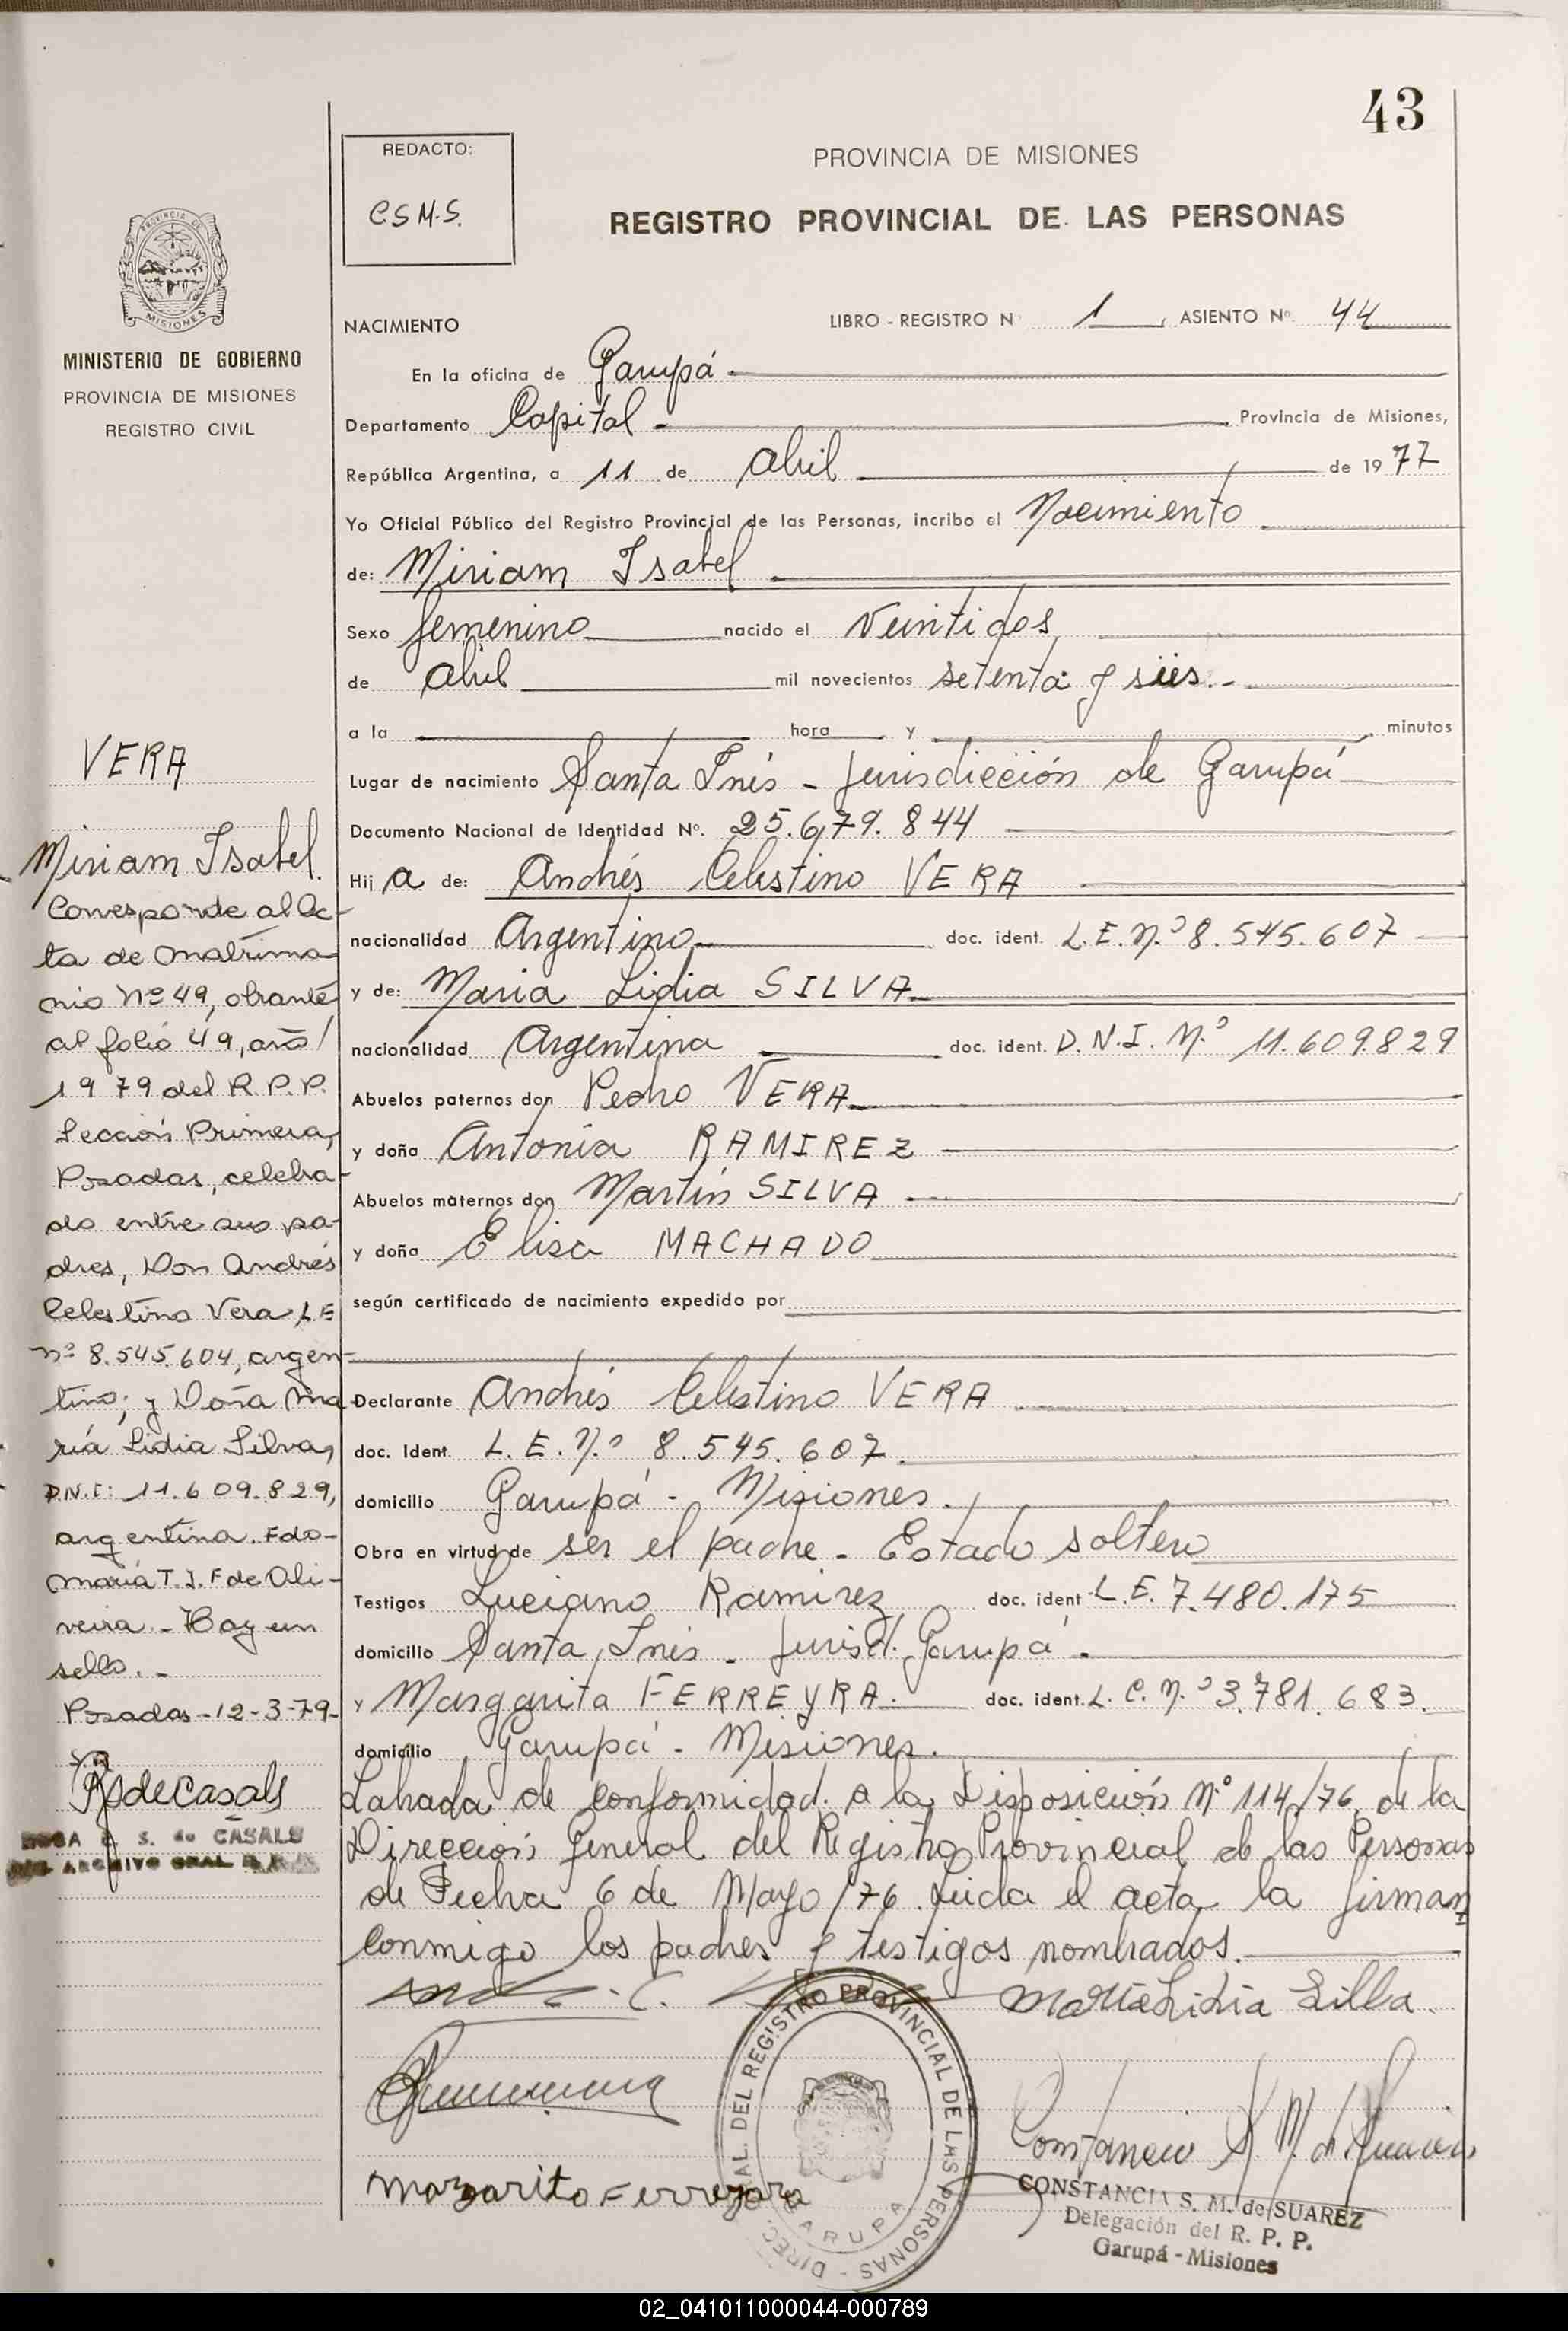 43
REDACTO:
C.S.M.S.
PROVINCIA DE MISIONES
REGISTRO PROVINCIAL DE LAS PERSONAS
PROVINCIA DE
MISIONES
MINISTERIO DE GOBIERNO
PROVINCIA DE MISIONES
REGISTRO CIVIL
NACIMIENTO
LIBRO - REGISTRO N 1, ASIENTO Nº 44
En la oficina de Garupá
Departamento Capital - Provincia de Misiones,
República Argentina, a 11 de abril de 1977
Yo Oficial Público del Registro Provincial de las Personas, incribo el Nacimiento
de: Miriam Isabel
Sexo femenino nacido el Veintidos
de abril mil novecientos setenta y seis.-
a la hora y minutos
Lugar de nacimiento Santa Inés - Jurisdicción de Garupá
Documento Nacional de Identidad Nº. 25.679.844
Hij a de: Andrés Celestino VERA
nacionalidad Argentino doc. ident. L.E.Nº 8.545.607
y de: Maria Lidia SILVA
nacionalidad Argentina doc. ident. D.N.I. Nº 11.609.829
Abuelos paternos don Pedro VERA
y doña Antonia RAMIREZ
Abuelos maternos don Martín SILVA
y doña Elisa MACHADO
según certificado de nacimiento expedido por
Declarante Andrés Celestino VERA
doc. Ident. L.E.Nº 8.545.607
domicilio Garupá - Misiones.
Obra en virtud de ser el padre - Estado soltero
Testigos Luciano Ramirez doc. ident L.E. 7.480.175
domicilio Santa Inés - Jurisd. Garupá -
y Margarita FERREYRA. doc. ident. L.C.Nº 3.781.683.
domicilio Garupá - Misiones.
Labrada de conformidad a la Disposición Nº 114/76 de la
Dirección General del Registro Provincial de las Personas
de Fecha 6 de Mayo/76. Leida el acta la firman
conmigo los padres y testigos nombrados.
VERA
Miriam Isabel.
Corresponde al Ac-
ta de Matrimo-
nio Nº 49, obrante
al folio 49, año/
1979 del R.P.P.
Sección Primera,
Posadas, celebra-
do entre sus pa-
dres, Don Andrés
Celestino Vera L.E
nº 8.545.604, argen-
tino; y Doña Ma-
ría Lidia Silva,
D.N.I: 11.609.829,
argentina. Fdo-
María T.J.F de Oli-
veira - Hay un
sello. -
Posadas - 12-3-79-
de Casals
S. de CASALS
ARCHIVO GRAL
Maria Lidia Silba.
Margarito Ferreyara
DIREC. GRAL. DEL REGISTRO PROVINCIAL DE LAS PERSONAS -
GARUPA
CONSTANCIA S. M. de SUAREZ
Delegación del R. P. P.
Garupá - Misiones
02_041011000044-000789